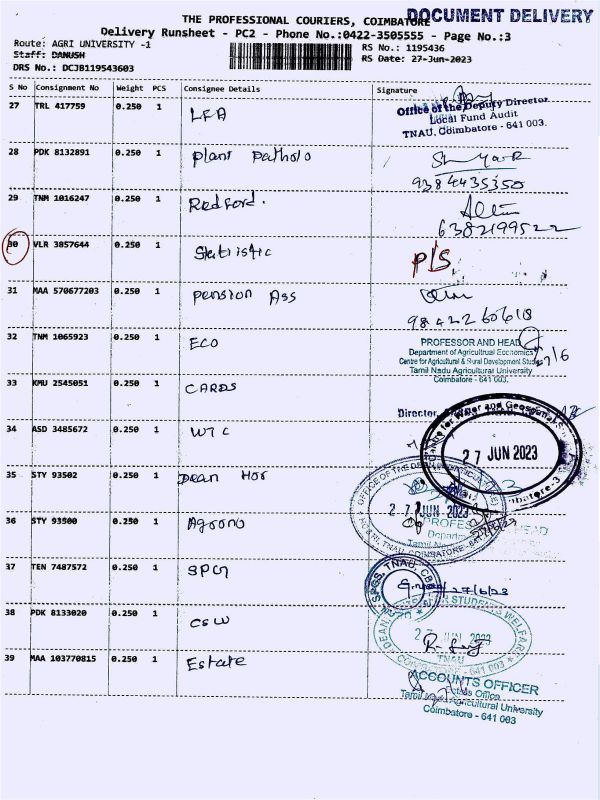 DOCUMENT DELIVERY
THE PROFESSIONAL COURIERS, COIMBATORE
Delivery Runsheet - PC2 - Phone No.:0422-3505555 - Page No.:3
Route: AGRI UNIVERSITY -1
RS No.: 1195436
Staff: DANUSH
RS Date: 27-Jun-2023
DRS No.: DCJB119543603
S No Consignment No Weight PCS Consignee Details Signature
27 TRL 417759 0.250 1 LFA
Office of the Deputy Director
Local Fund Audit
TNAU, Coimbatore - 641 003.
28 PDK 8132891 0.250 1 Plant Patholo
9384435350
29 TNM 1016247 0.250 1 Redford.
6382199522
30 VLR 3857644 0.250 1 Statistic P/S
31 MAA 570677203 0.250 1 Pension Ass
9842260618
32 TNM 1065923 0.250 1 ECO
PROFESSOR AND HEAD
Department of Agricultrual Economics
Centre for Agricultural & Rural Development Studies
Tamil Nadu Agricultural University
Coimbatore - 641 003.
27/6
33 KMU 2545051 0.250 1 CARDS
Director,
34 ASD 3485672 0.250 1 WTC
Centre for Water and Geospatial
27 JUN 2023
35 STY 93502 0.250 1 Dean Hor
OFFICE OF THE DEAN
27 JUN 2023
TNAU, COIMBATORE
36 STY 93500 0.250 1 Agrono
PROFESSOR HEAD
37 TEN 7487572 0.250 1 SPG
SPGS, TNAU, CBE
27/6/23
38 PDK 8133020 0.250 1 CSW
DEAN, STUDENTS WELFARE
27 JUN 2023
TNAU
COIMBATORE - 641 003
39 MAA 103770815 0.250 1 Estate
ACCOUNTS OFFICER
Estate Office
Tamil Nadu Agricultural University
Coimbatore - 641 003